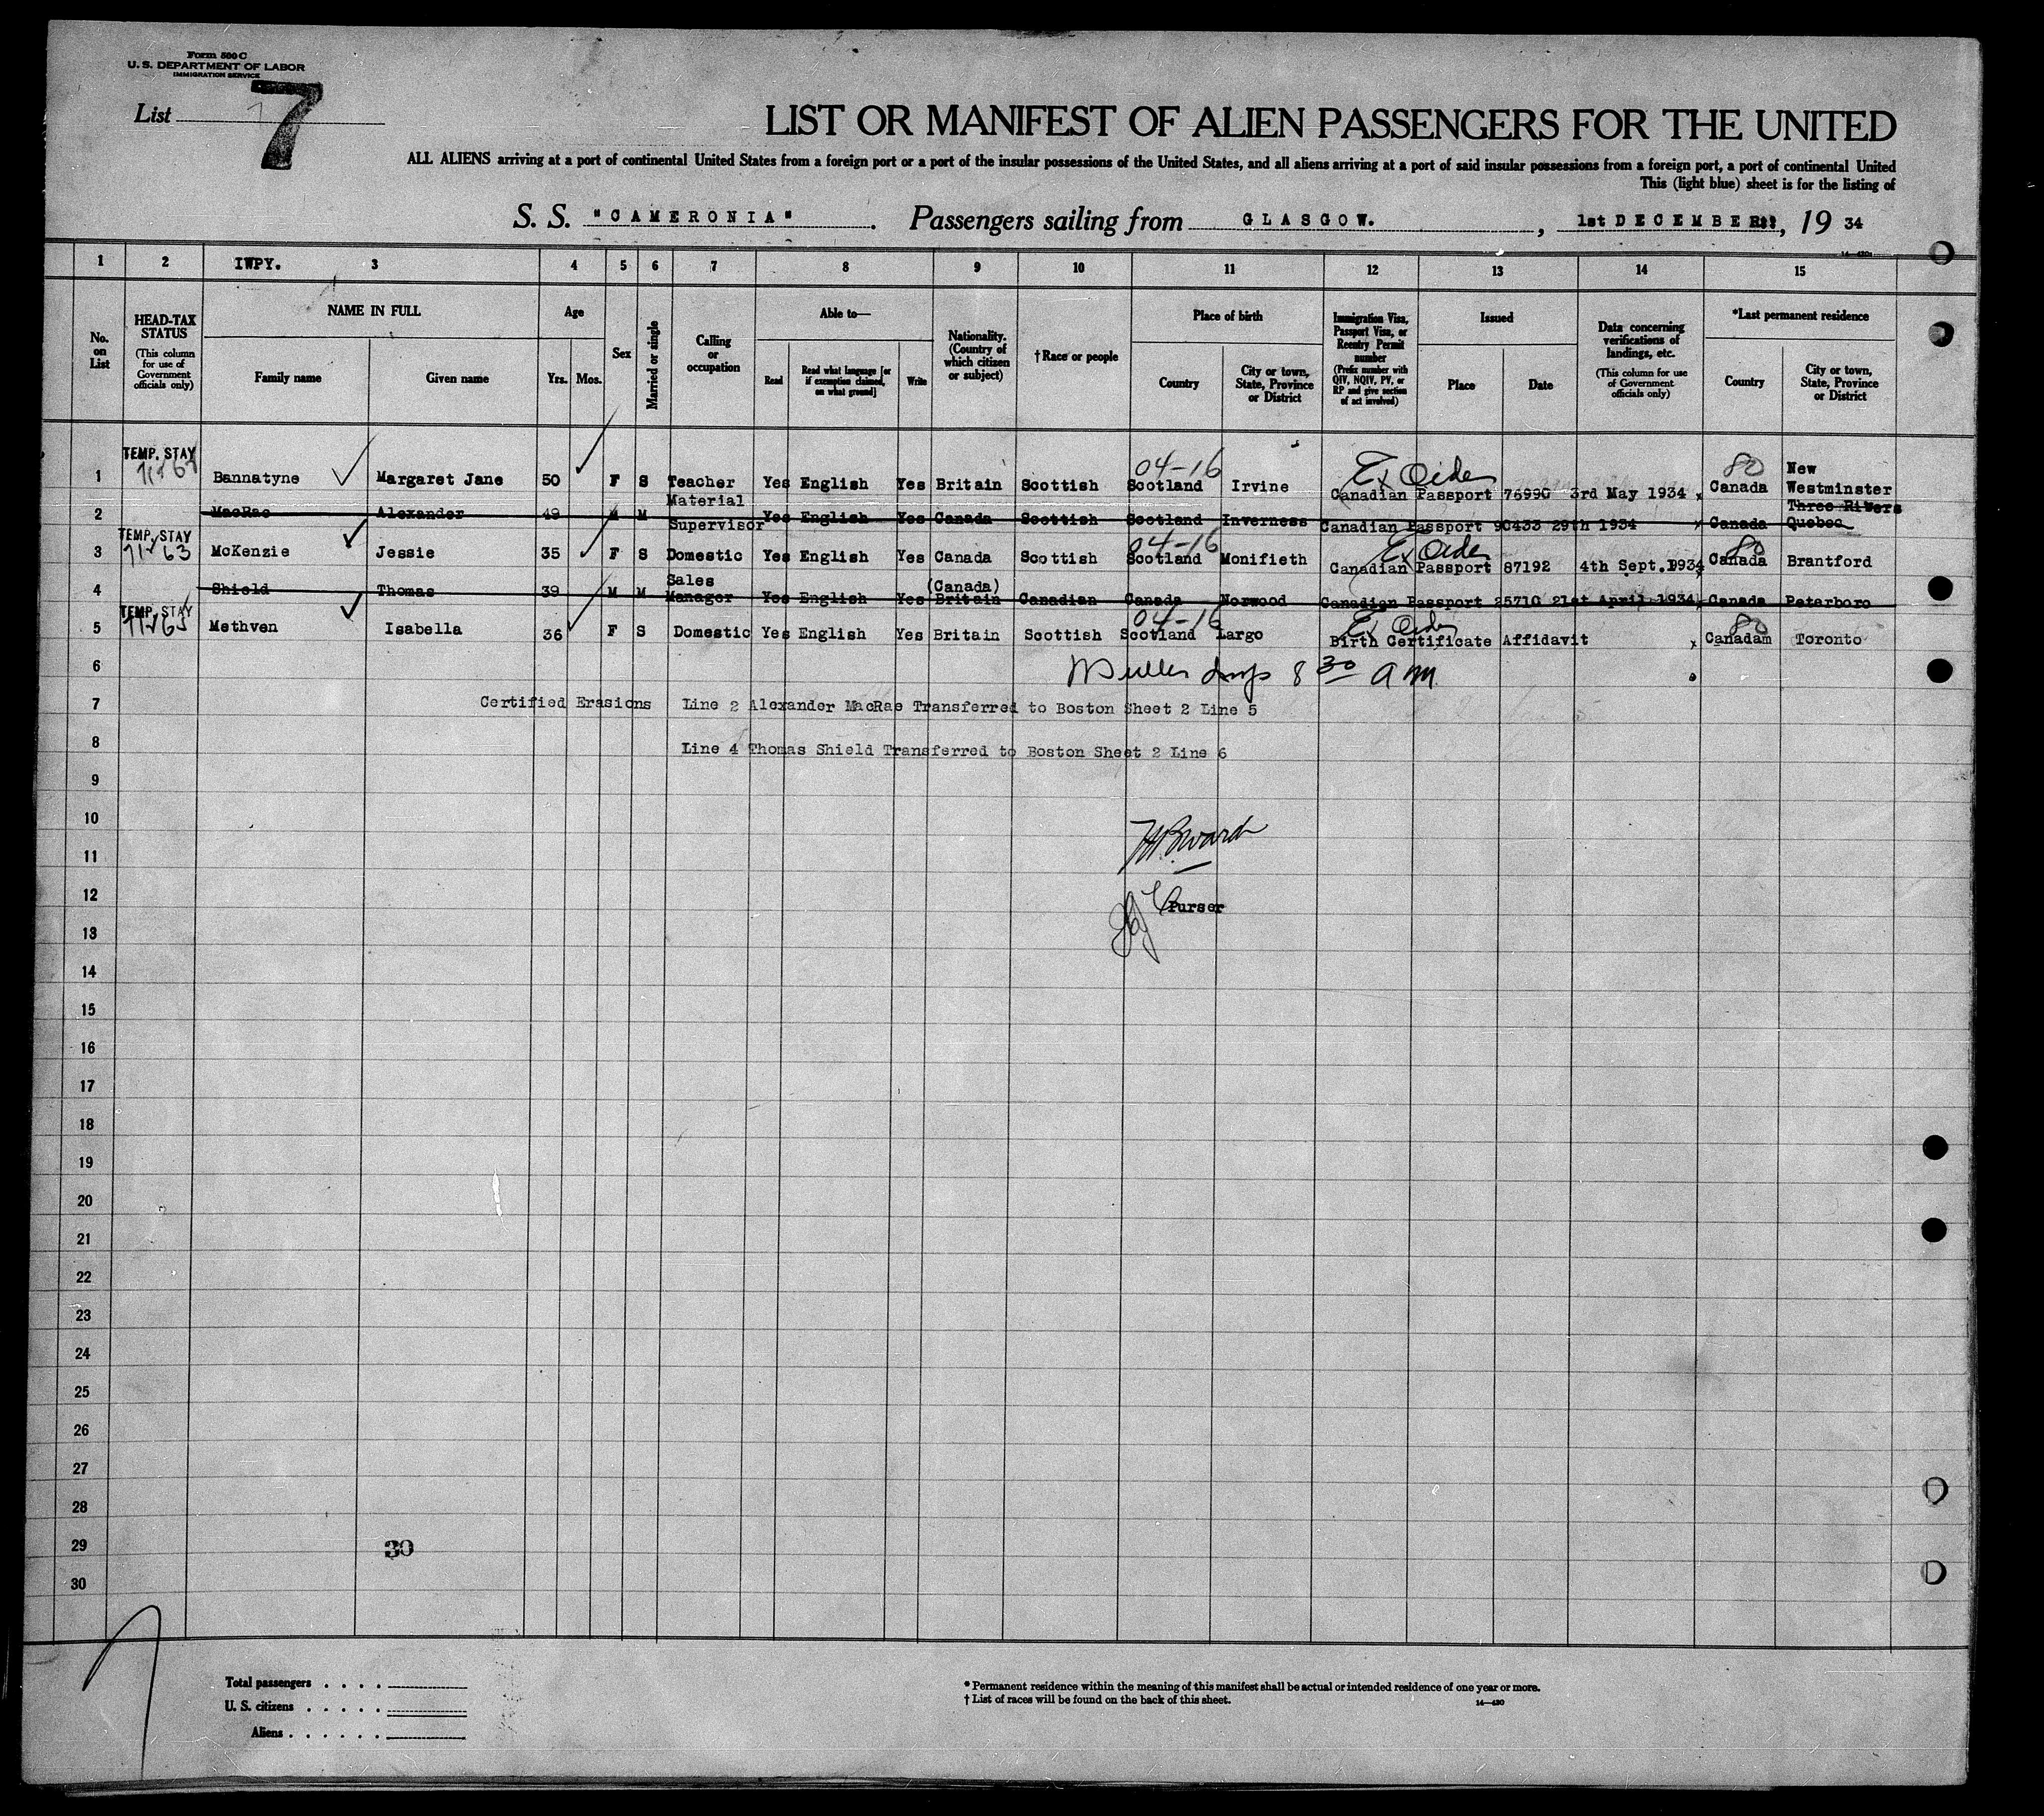 Form 500 C
U. S. DEPARTMENT OF LABOR
IMMIGRATION SERVICE
List 7
7
LIST OR MANIFEST OF ALIEN PASSENGERS FOR THE UNITED
ALL ALIENS arriving at a port of continental United States from a foreign port or a port of the insular possessions of the United States, and all aliens arriving at a port of said insular possessions from a foreign port, a port of continental United
This (light blue) sheet is for the listing of
S. S. "CAMERONIA". Passengers sailing from GLASGOW. , 1st DECEMBER , 19 34
1 2 IWPY. 3 4 5 6 7 8 9 10 11 12 13 14 15
No. on List
HEAD-TAX STATUS
(This column for use of Government officials only)
NAME IN FULL
Family name
Given name
Age
Yrs. Mos.
Sex
Married or single
Calling or occupation
Able to—
Read
Read what language [or if exemption claimed, on what ground]
Write
Nationality. (Country of which citizen or subject)
† Race or people
Place of birth
Country
City or town, State, Province or District
Immigration Visa, Passport Visa, or Reentry Permit number
(Prefix number with QIV, NQIV, PV, or RP and give section of act involved)
Issued
Place
Date
Data concerning verifications of landings, etc.
(This column for use of Government officials only)
*Last permanent residence
Country
City or town, State, Province or District
TEMP. STAY
04-16 80
1 Bannatyne Margaret Jane 50 F S Teacher Yes English Yes Britain Scottish Scotland Irvine Canadian Passport 76990 3rd May 1934 x Canada New Westminster
2 MacRae Alexander 49 M M Material Supervisor Yes English Yes Canada Scottish Scotland Inverness Canadian Passport 90433 29th 1934 x Canada Three Rivers Quebec
TEMP. STAY
04-16 80
3 McKenzie Jessie 35 F S Domestic Yes English Yes Canada Scottish Scotland Monifieth Canadian Passport 87192 4th Sept. 1934 Canada Brantford
4 Shield Thomas 39 M M Sales Manager Yes English Yes (Canada) Britain Canadian Canada Norwood Canadian Passport 25710 21st April 1934 Canada Peterboro
TEMP. STAY
04-16 80
5 Methven Isabella 36 F S Domestic Yes English Yes Britain Scottish Scotland Largo Birth Certificate Affidavit x Canadam Toronto
6 8 30 am
7 Certified Erasions Line 2 Alexander MacRae Transferred to Boston Sheet 2 Line 5
8 Line 4 Thomas Shield Transferred to Boston Sheet 2 Line 6
9
10
11
12 Purser
13
14
15
16
17
18
19
20
21
22
23
24
25
26
27
28
29 30
30
7
Total passengers . . . .
U. S. citizens . . . . .
Aliens . . . . . .
* Permanent residence within the meaning of this manifest shall be actual or intended residence of one year or more.
† List of races will be found on the back of this sheet. 14—430